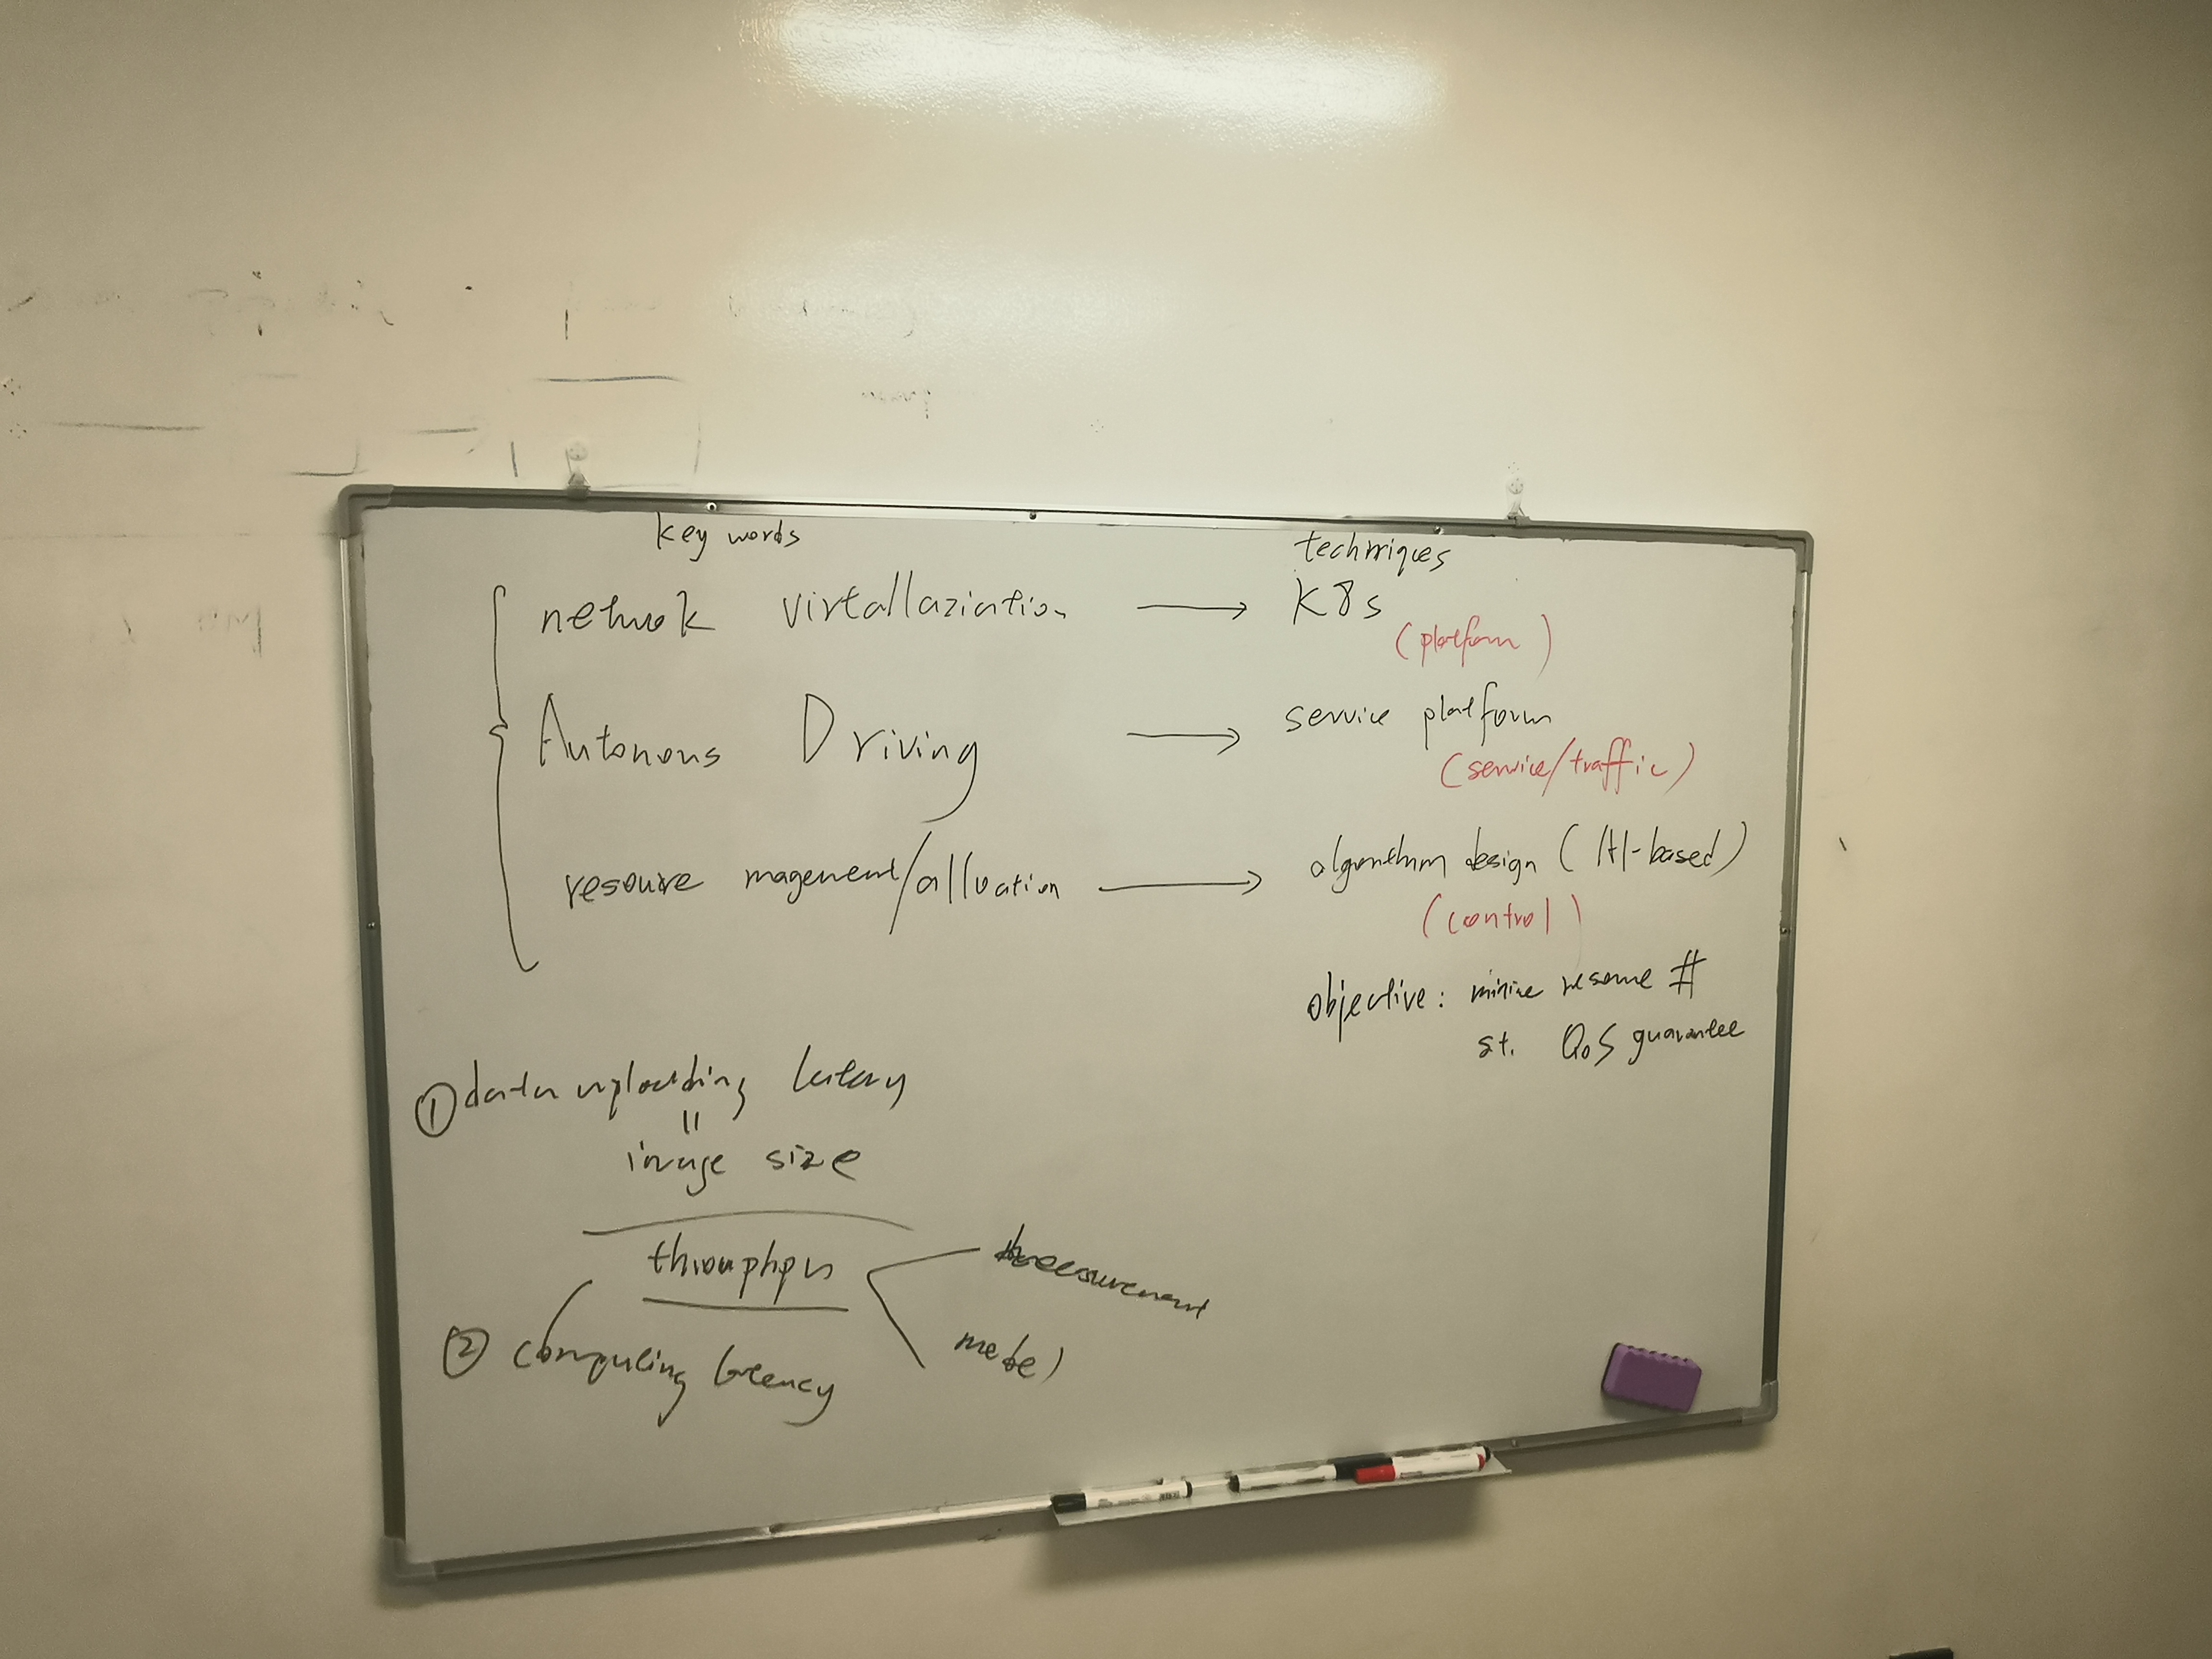 key words
techniques
network virtallaziation → K8s
(platform)
Autonous Driving → service platform
(service/traffic)
resource magement/allocation → algorithm design (AI-based)
(control)
objective: minize resource #
st. QoS guarantee
① data uploading latency
=
image size
throughput
measurement
model
② computing latency